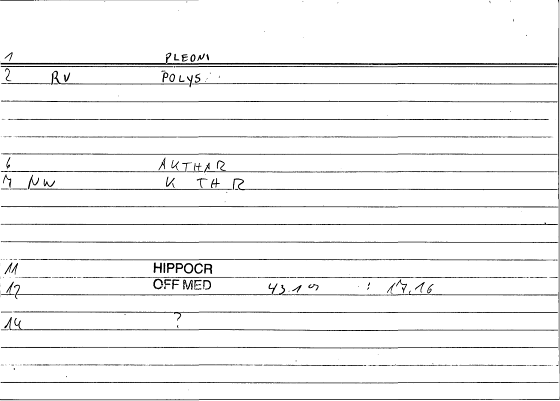 1 PLEONI
2 RV POLYS.
6 AKTHAR
7 NW K THR
11 HIPPOCR
12 OFF MED : 17.16
14 ?